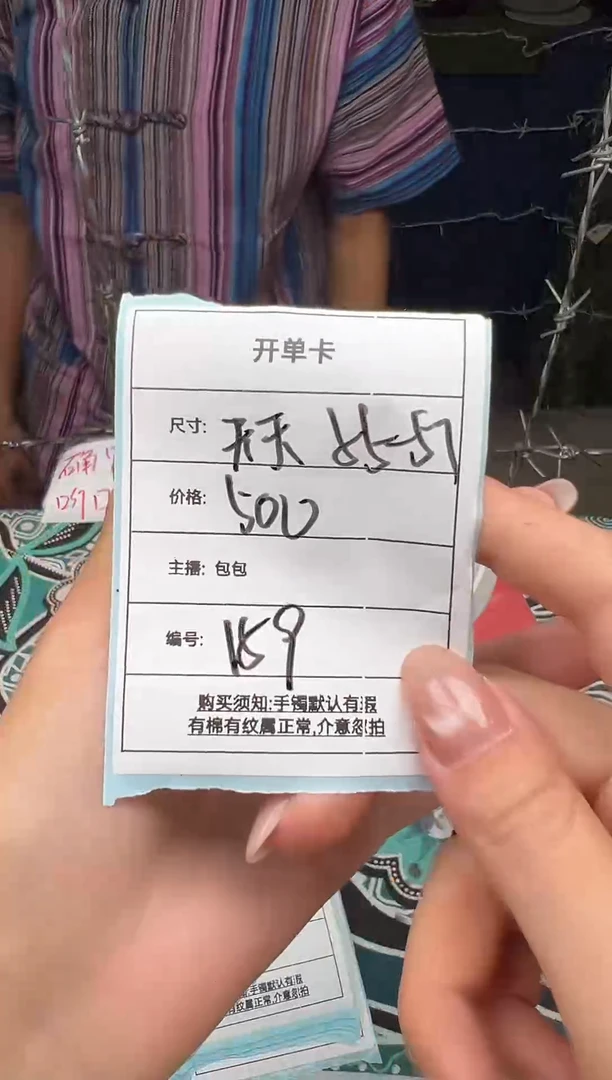 开单卡
尺寸: 天天 55-57
价格: 500
主播: 包包
编号: 159
购买须知:手镯默认有瑕
有棉有纹属正常,介意忽拍
手镯默认有瑕
有纹属正常,介意忽拍